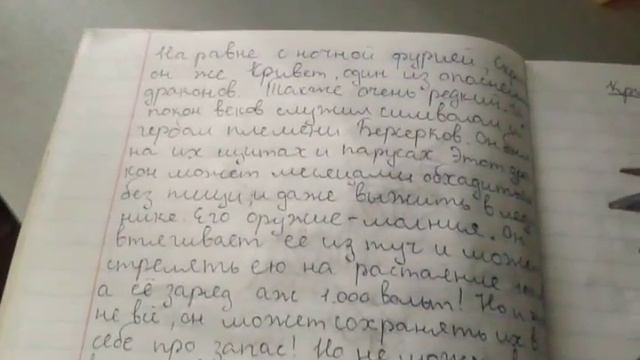 На равне с ночной фурией,
он же Кривет, один из
драконов. Также очень редкий.
покон веков служил символом,
гербом племени Берсерков. Он
на их щитах и парусах. Этот
кон может месецами обхадиться
без пищи, и даже выжить в
нике. Его оружие - молния. Он
втягивает её из туч и може
стрелять ею на растаение
а её заряд аж 1.000 вольт! Но и
не всё, он может сохранять их в
себе про запас! Но не